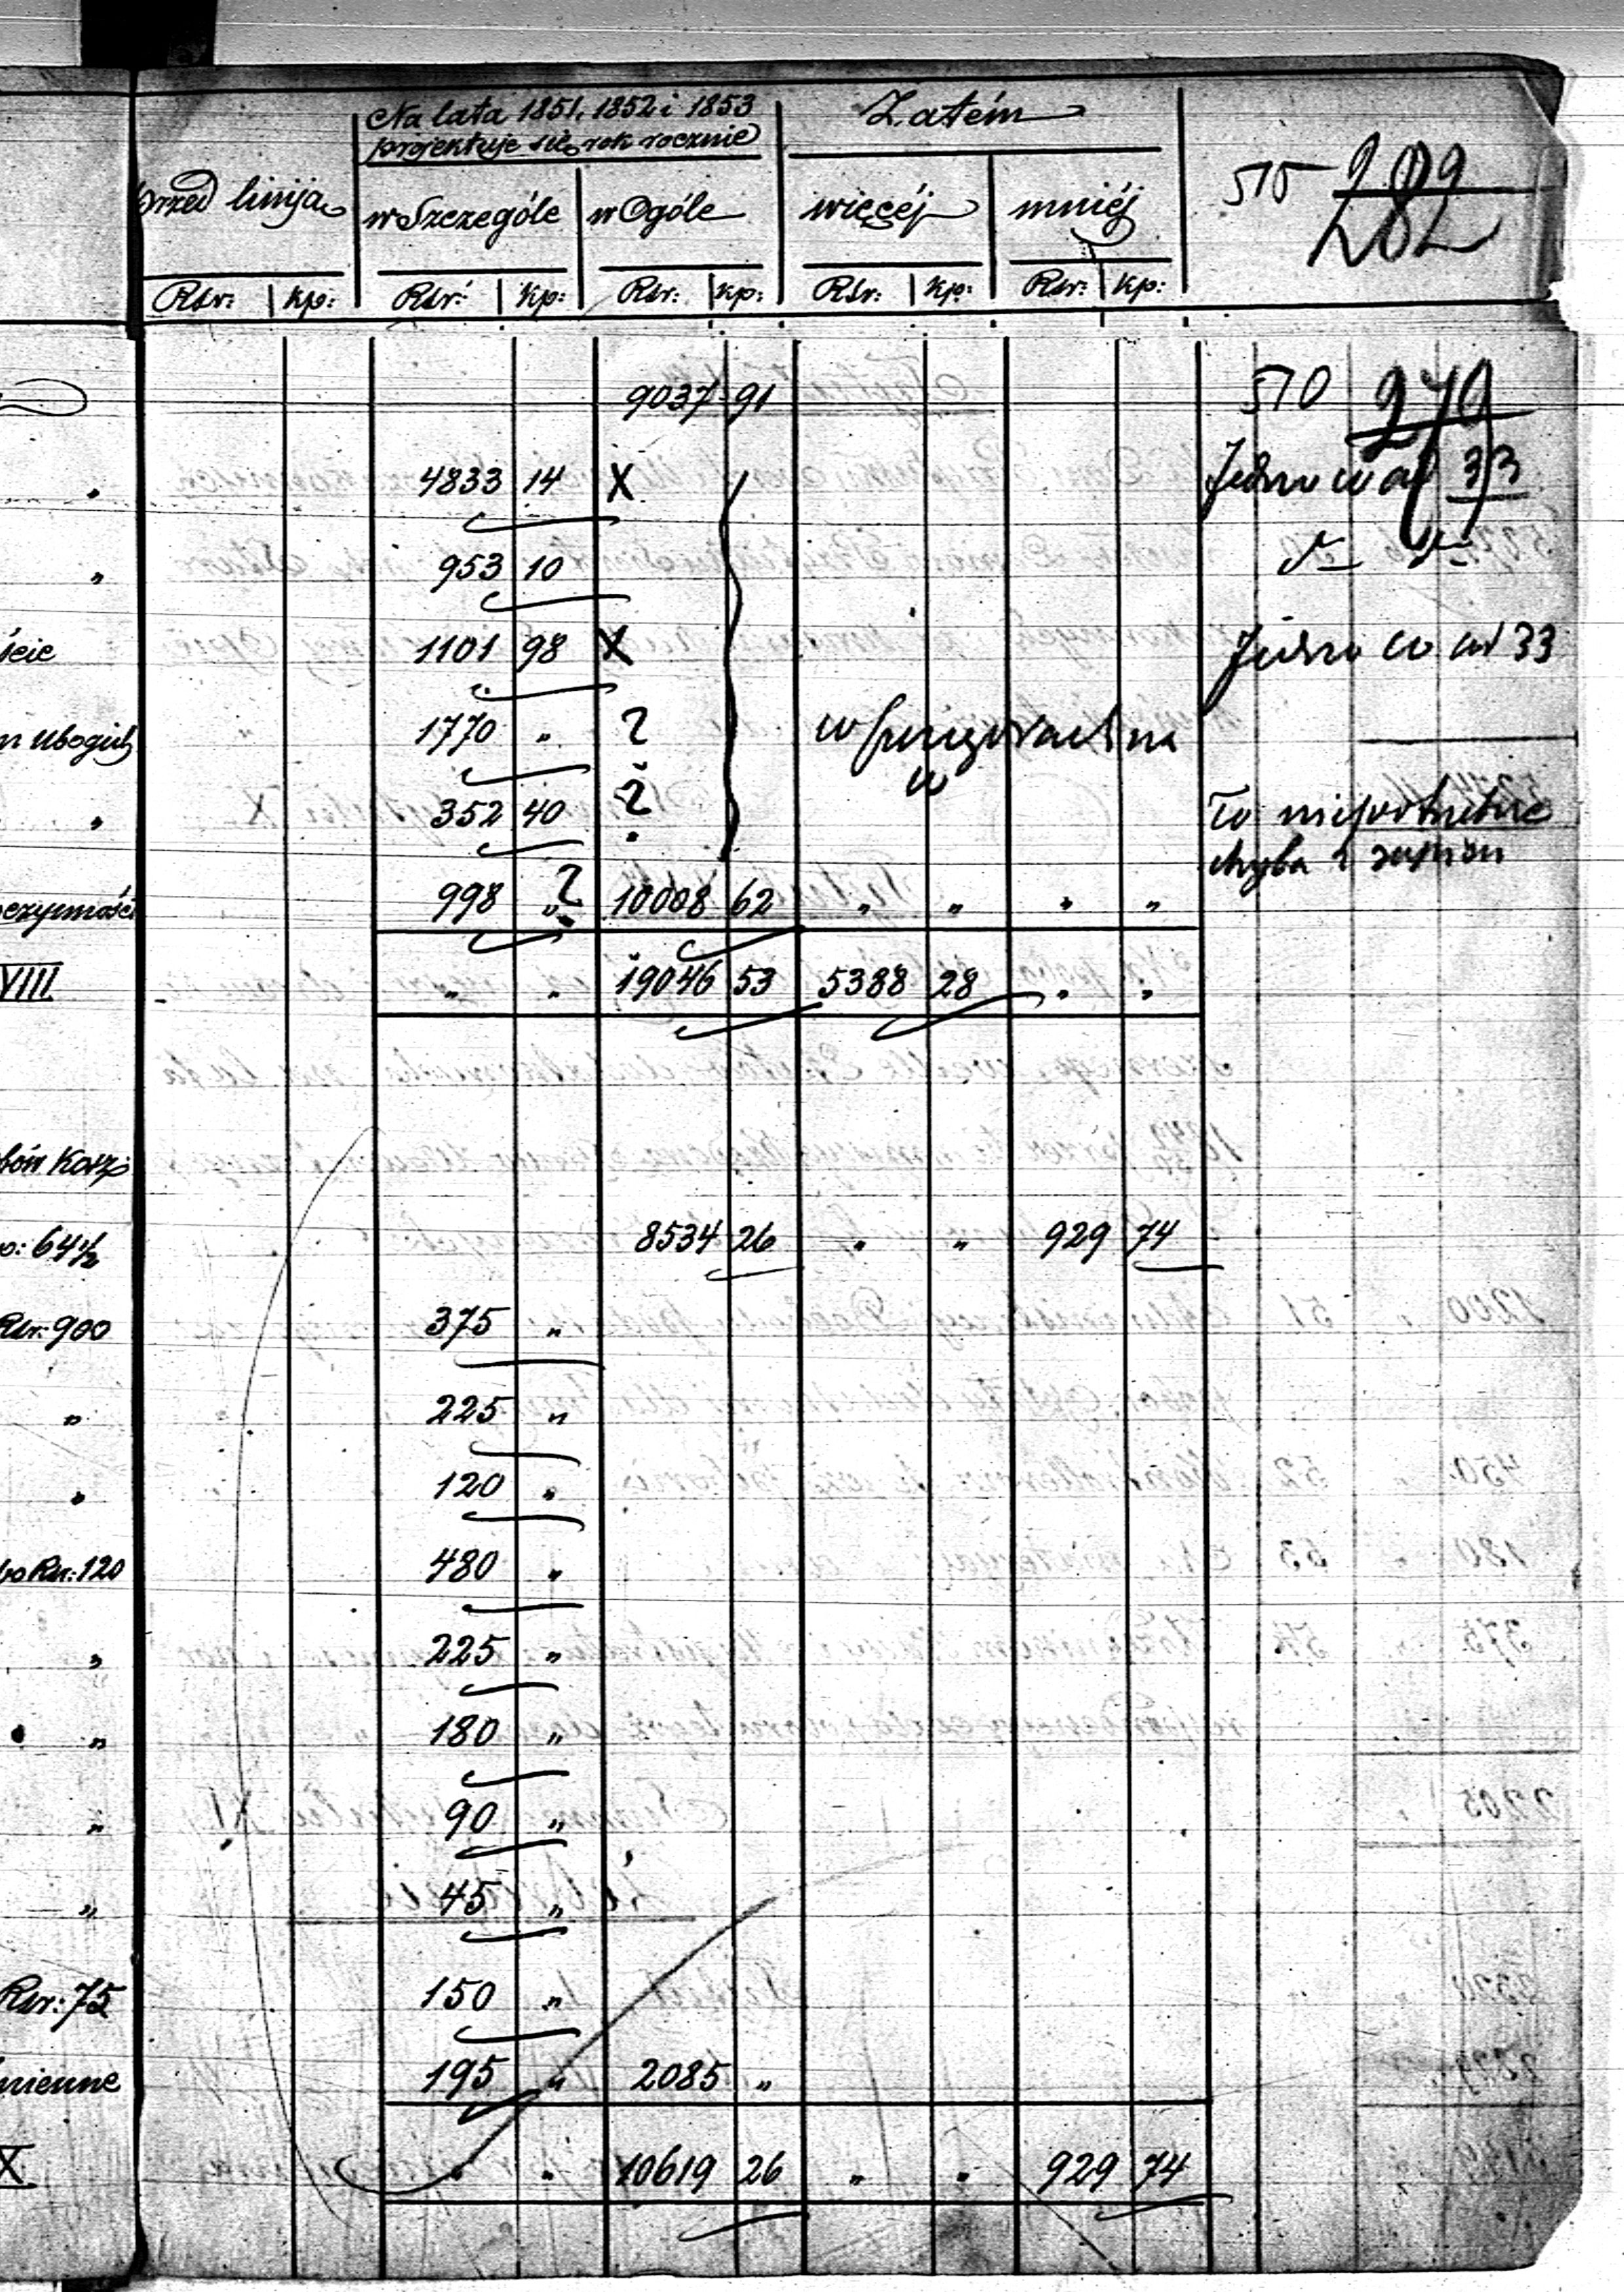 Na lata 1851, 1852 i 1853
projektuje się rok rocznie
Zatém
przed liniją
w Szczególe
w Ogóle
więcéj
mniéj
515 289
282
Rsr: kp: Rsr: kp: Rsr: kp: Rsr: kp: Rsr: kp:
9037 91
510 279
" 4833 14 X
33
" 953 10
ście 1101 98 X
33
m Ubogich 1770 " ?
na
w
" 352 40 ?
To niepotrzebne
chyba
oczynności 998 " ? 10008 62 " " " "
VIII " " 19046 53 5388 28 " "
bów Karz:
p: 64½ 8534 26 " " 929 74
Rsr: 900 375 "
" 225 "
" 120 "
po Rsr: 120 480 "
" 225 "
" 180 "
" 90 "
" 45 "
Rsr: 75 150 "
mienne 195 " 2085 "
X " " 10619 26 " " 929 74